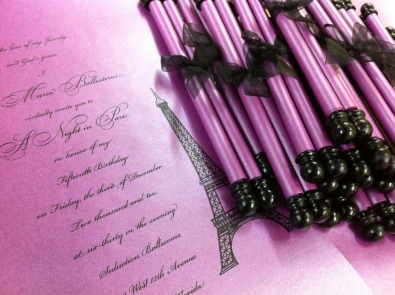 the love of my family
and God's grace
I
Maria Ballesteros
cordially invite you to
A Night in Paris
in honor of my
Fifteenth Birthday
on Friday, the third of December
Two thousand and ten
at six-thirty in the evening
Seduction Ballrooms
West 12th Avenue